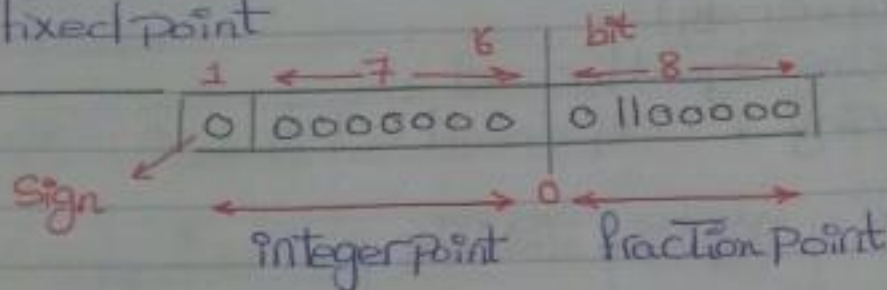 fixed point
6 bit
1 7 8
0 0000000 01100000
Sign 0
integer point fraction point